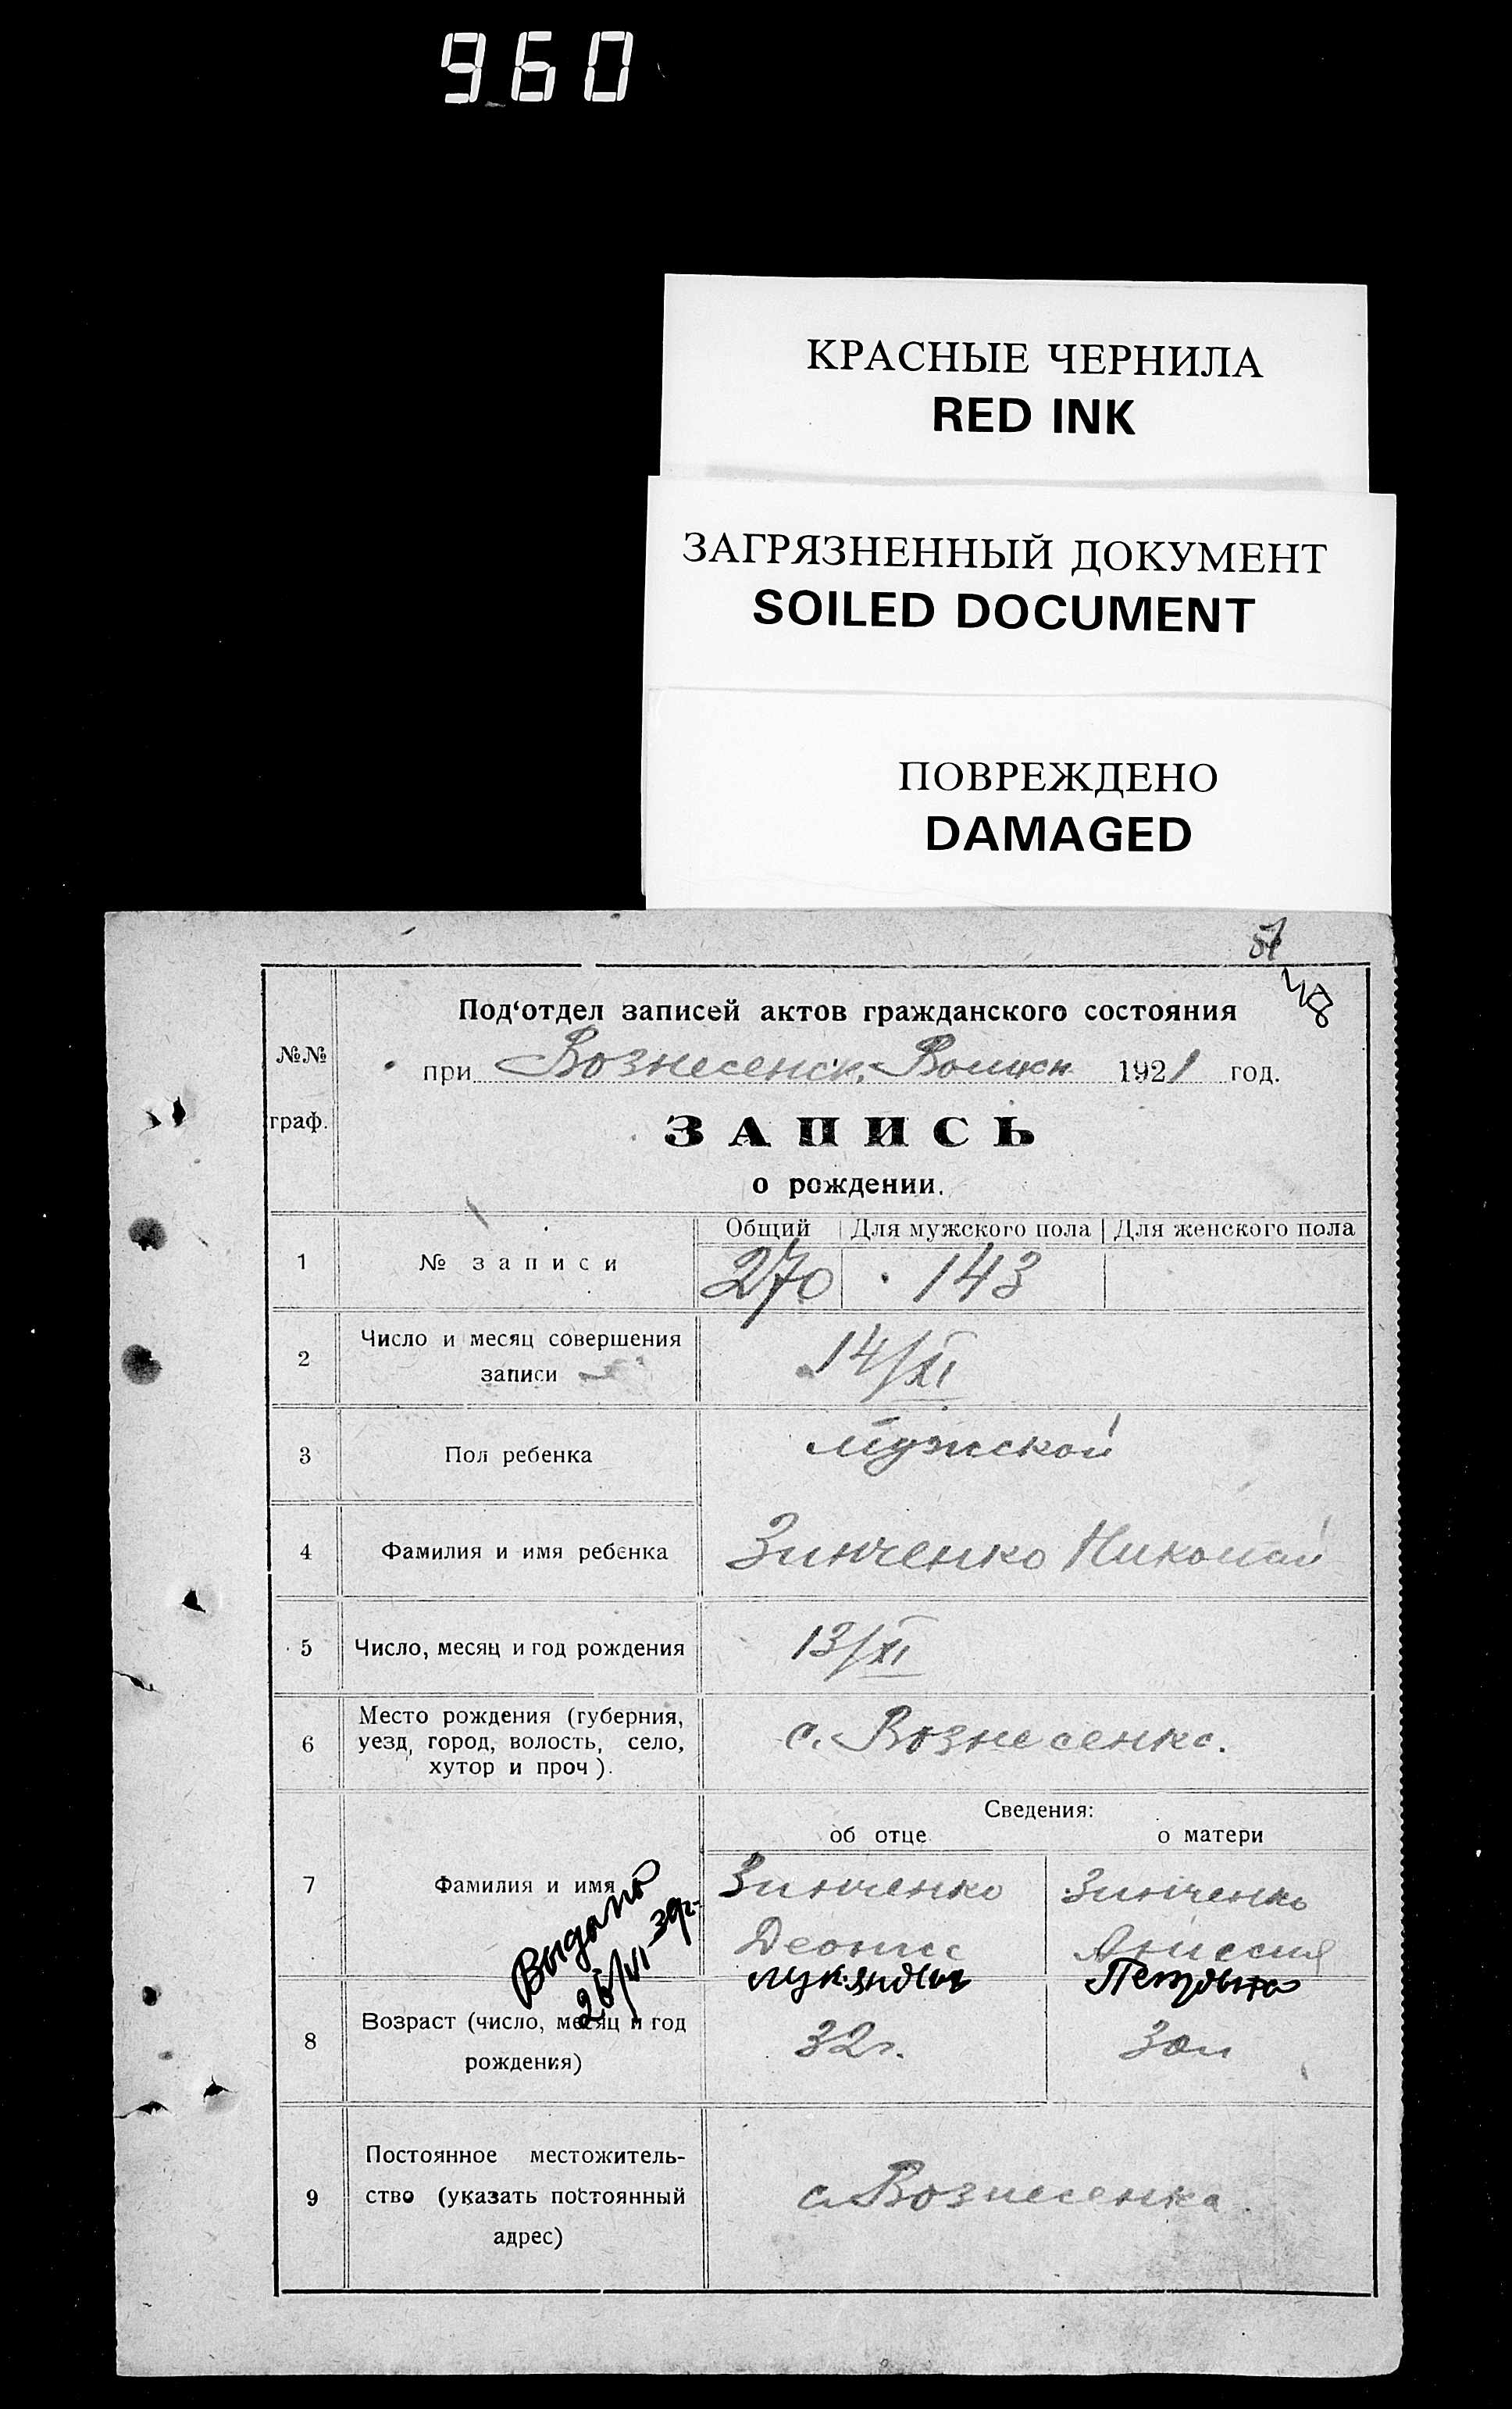 960
КРАСНЫЕ ЧЕРНИЛА
RED INK
ЗАГРЯЗНЕННЫЙ ДОКУМЕНТ
SOILED DOCUMENT
ПОВРЕЖДЕНО
DAMAGED
48
Под‘отдел записей актов гражданского состояния
№№
при Вознесенск. 1921 год.
граф.
ЗАПИСЬ
о рождении.
Общий Для мужского пола Для женского пола
1 № записи 270 143
2 Число и месяц совершения
записи 14/XI
3 Пол ребенка мужской
4 Фамилия и имя ребенка Зинченко Николай
5 Число, месяц и год рождения 13/XI
6 Место рождения (губерния,
уезд, город, волость, село,
хутор и проч). с. Вознесенка.
Сведения:
об отце о матери
7 Фамилия и имя Зинченко Зинченко
Выдано
26/VI-39г.
Деонис Анисия
Лукянович Петровна
8 Возраст (число, месяц и год
рождения) 32г. 30л
9 Постоянное местожитель-
ство (указать постоянный
адрес) с. Вознесенка.